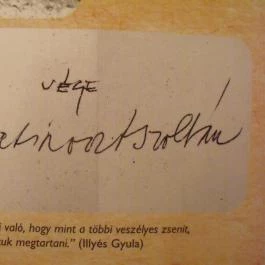 VÉGE
atinovitszoltán
i való, hogy mint a többi veszélyes zsenit,
tuk megtartani." (Illyés Gyula)